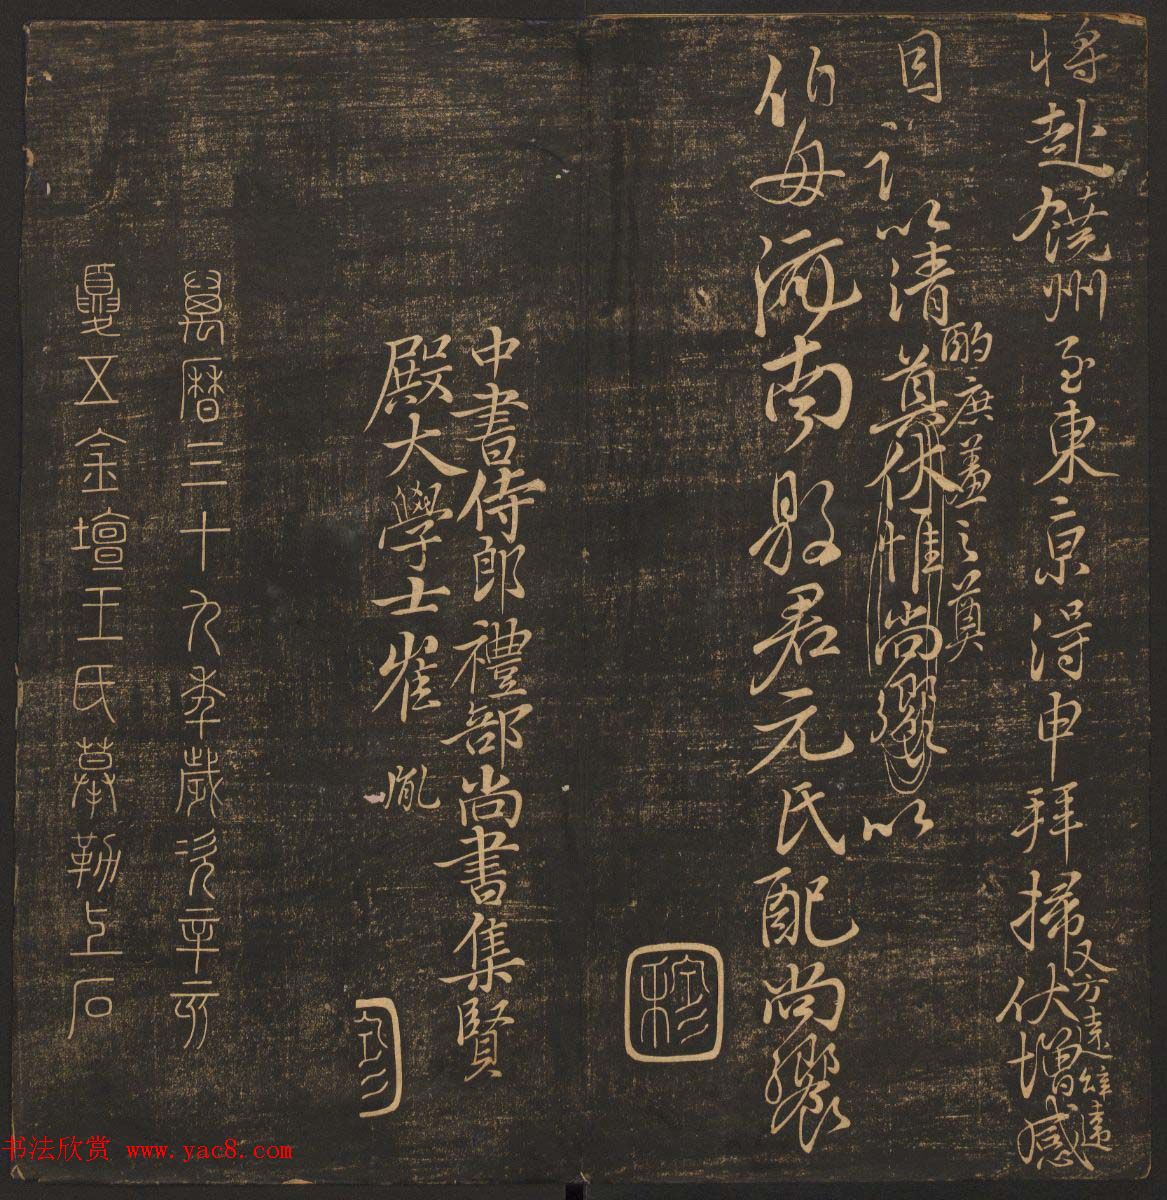 將赴饒州至東京得申拜掃又方遠辭違伏增感
謹以清酌庶羞之奠伏惟尚饗以
伯母河南縣君元氏配尚饗
中書侍郎禮部尚書集賢
殿大學士崔胤
萬曆三十九年歲次辛亥
夏五金壇王氏摹勒上石
书法欣赏 www.yac8.com